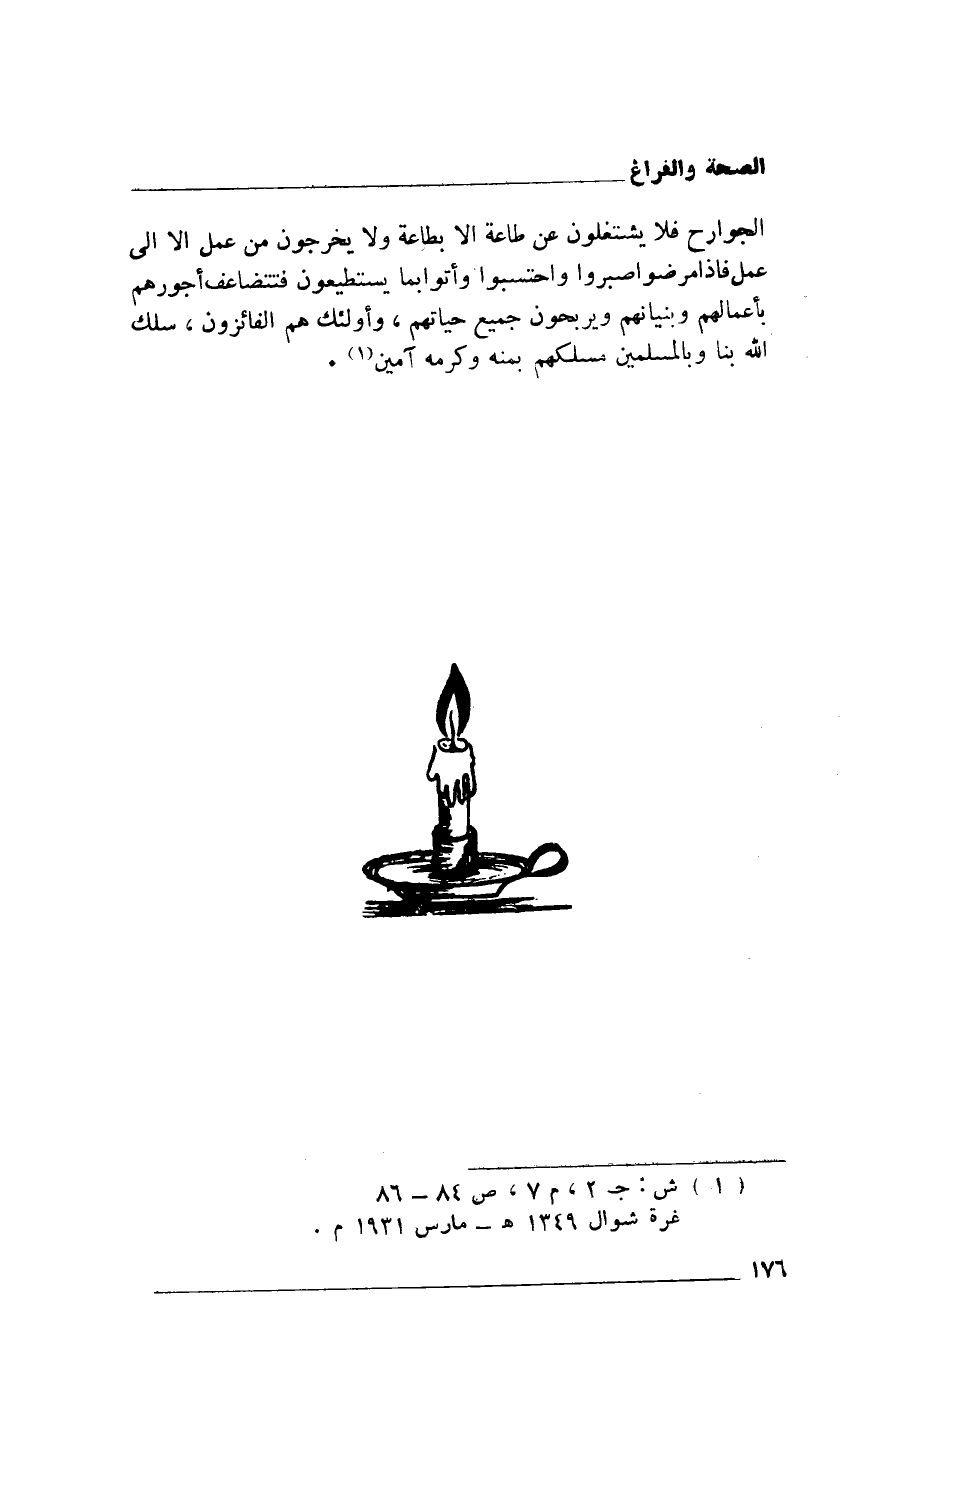 الصحة والفراغ
الجوارح فلا يشتغلون عن طاعة الا بطاعة ولا يخرجون من عمل الا الى
عمل فاذا مرضوا صبروا واحتسبوا وأتوا بما يستطيعون فتتضاعف أجورهم
بأعمالهم وبنيانهم ويربحون جميع حياتهم ، وأولئك هم الفائزون ، سلك
الله بنا وبالمسلمين مسلكهم بمنه وكرمه آمين(١) .
( ١ ) ش : جـ ٢ ، م ٧ ، ص ٨٤ ــ ٨٦
غرة شوال ١٣٤٩ هـ ــ مارس ١٩٣١ م .
١٧٦